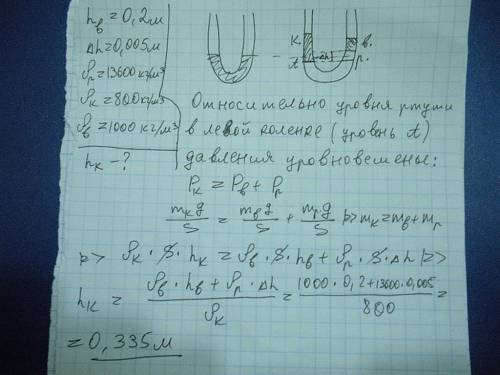 hв = 0,2 м
Δh = 0,005 м
ρр = 13600 кг/м³
ρк = 800 кг/м³
ρв = 1000 кг/м³
hк – ?
к
в.
A
р.
Δh
Относительно уровня ртути
в левой колене (уровень A)
давления уравновешены:
Pк = Pв + Pр
mкg/S = mвg/S + mрg/S |=> mк = mв + mр
|=> ρк · S · hк = ρв · S · hв + ρр · S · Δh |=>
hк = (ρв · hв + ρр · Δh)/ρк = (1000 · 0,2 + 13600 · 0,005)/800 =
= 0,335 м